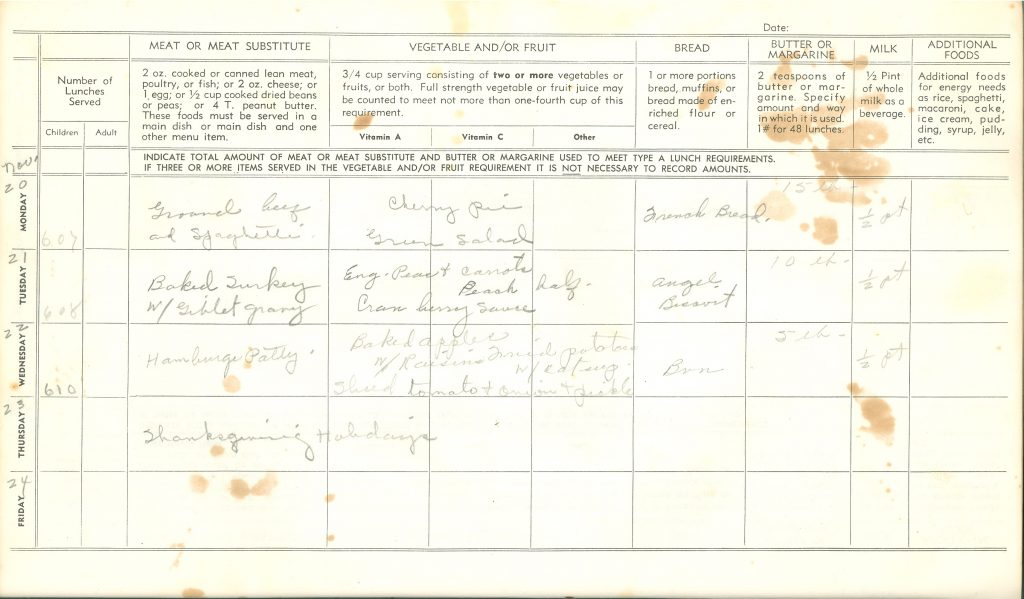 Date:
MEAT OR MEAT SUBSTITUTE
VEGETABLE AND/OR FRUIT
BREAD
BUTTER OR
MARGARINE
MILK
ADDITIONAL
FOODS
Number of
Lunches
Served
2 oz. cooked or canned lean meat,
poultry, or fish; or 2 oz. cheese; or
1 egg; or ½ cup cooked dried beans
or peas; or 4 T. peanut butter.
These foods must be served in a
main dish or main dish and one
other menu item.
3/4 cup serving consisting of two or more vegetables or
fruits, or both. Full strength vegetable or fruit juice may
be counted to meet not more than one-fourth cup of this
requirement.
1 or more portions
bread, muffins, or
bread made of en-
riched flour or
cereal.
2 teaspoons of
butter or mar-
garine. Specify
amount and way
in which it is used.
1# for 48 lunches.
½ Pint
of whole
milk as a
beverage.
Additional foods
for energy needs
as rice, spaghetti,
macaroni, cake,
ice cream, pud-
ding, syrup, jelly,
etc.
Children
Adult
Vitamin A
Vitamin C
Other
Nov.
INDICATE TOTAL AMOUNT OF MEAT OR MEAT SUBSTITUTE AND BUTTER OR MARGARINE USED TO MEET TYPE A LUNCH REQUIREMENTS.
IF THREE OR MORE ITEMS SERVED IN THE VEGETABLE AND/OR FRUIT REQUIREMENT IT IS NOT NECESSARY TO RECORD AMOUNTS.
20
MONDAY
607
Ground beef
ad Spaghetti
Cherry pie
Green Salad
French Bread.
15 lb-
½ pt
21
TUESDAY
608
Baked Turkey
W/ Giblet gravy
Eng. Peas + Carrots
Peach half.
Cranberry Sauce
Angel
Biscuit
10 lb-
½ pt
22
WEDNESDAY
610
Hamburge Patty
Baked apples
W/ Raisins Fried potatoes
W/ Catsup
Sliced tomato + Onion + pickle
Bun
5 lb-
½ pt
23
THURSDAY
Thanksgiving Holidays
24
FRIDAY